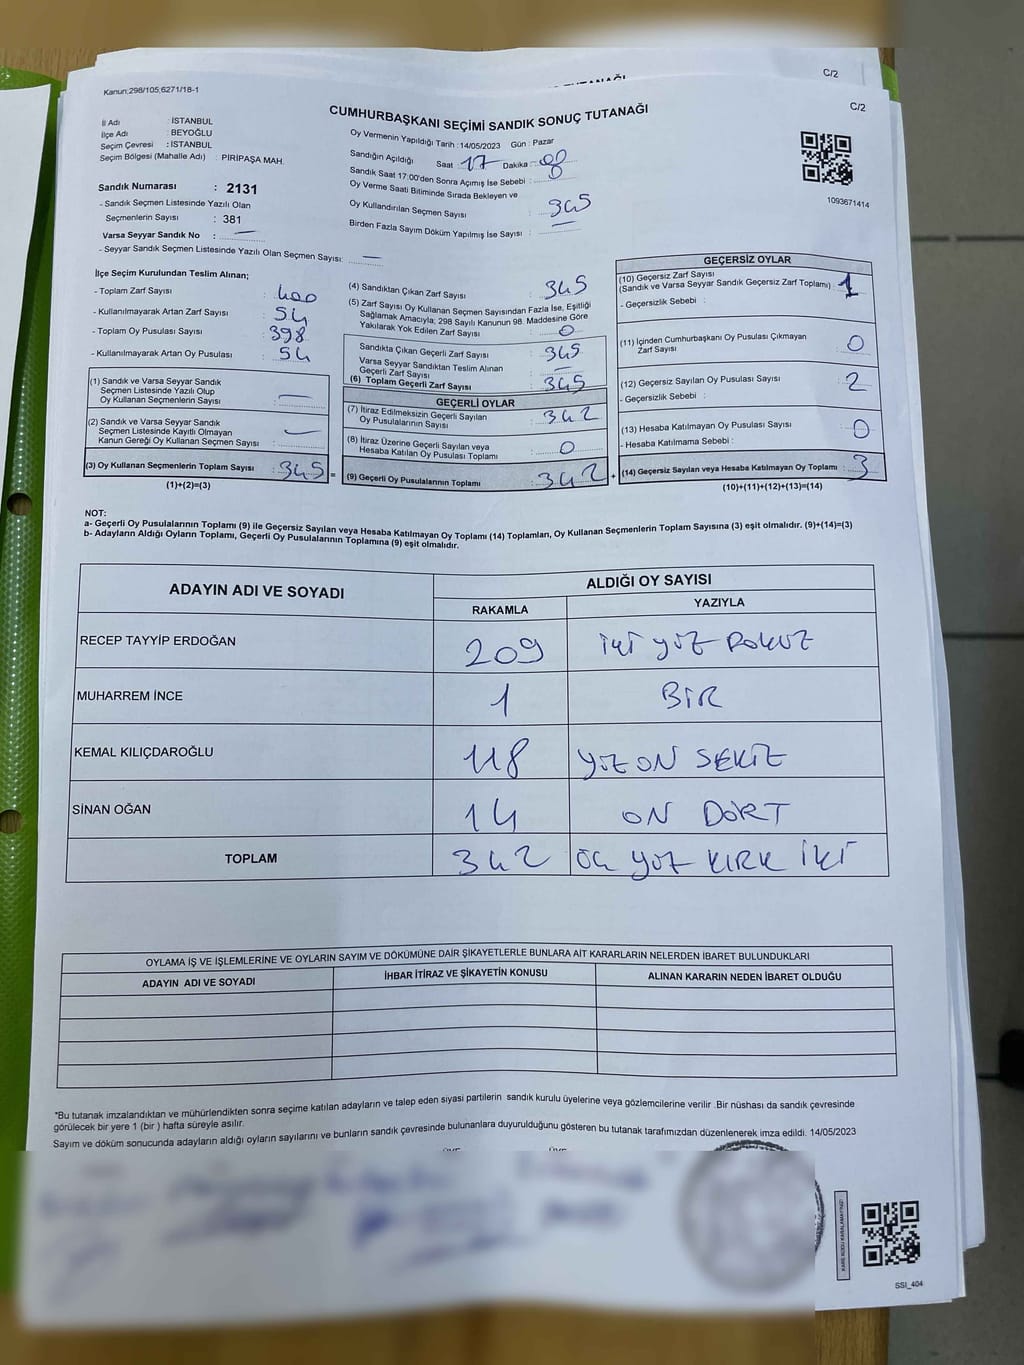 C/2
Kanun;298/105;6271/18-1
C/2
CUMHURBAŞKANI SEÇİMİ SANDIK SONUÇ TUTANAĞI
İl Adı : İSTANBUL
İlçe Adı : BEYOĞLU
Seçim Çevresi : İSTANBUL
Seçim Bölgesi (Mahalle Adı) : PİRİPAŞA MAH.
Sandık Numarası : 2131
- Sandık Seçmen Listesinde Yazılı Olan
Seçmenlerin Sayısı : 381
Varsa Seyyar Sandık No : —
- Seyyar Sandık Seçmen Listesinde Yazılı Olan Seçmen Sayısı: —
Oy Vermenin Yapıldığı Tarih : 14/05/2023 Gün : Pazar
Sandığın Açıldığı Saat 17 Dakika : 00
Sandık Saat 17:00'den Sonra Açımış İse Sebebi :
Oy Verme Saati Bitiminde Sırada Bekleyen ve
Oy Kullandırılan Seçmen Sayısı : 345
Birden Fazla Sayım Döküm Yapılmış İse Sayısı : —
1093671414
İlçe Seçim Kurulundan Teslim Alınan;
- Toplam Zarf Sayısı : 400
- Kullanılmayarak Artan Zarf Sayısı : 54
- Toplam Oy Pusulası Sayısı : 398
- Kullanılmayarak Artan Oy Pusulası : 54
(1) Sandık ve Varsa Seyyar Sandık
Seçmen Listesinde Yazılı Olup
Oy Kullanan Seçmenlerin Sayısı : —
(2) Sandık ve Varsa Seyyar Sandık
Seçmen Listesinde Kayıtlı Olmayan
Kanun Gereği Oy Kullanan Seçmen Sayısı : —
(3) Oy Kullanan Seçmenlerin Toplam Sayısı : 345 =
(1)+(2)=(3)
(4) Sandıktan Çıkan Zarf Sayısı : 345
(5) Zarf Sayısı Oy Kullanan Seçmen Sayısından Fazla İse, Eşitliği
Sağlamak Amacıyla; 298 Sayılı Kanunun 98. Maddesine Göre
Yakılarak Yok Edilen Zarf Sayısı : 0
Sandıkta Çıkan Geçerli Zarf Sayısı : 345
Varsa Seyyar Sandıktan Teslim Alınan
Geçerli Zarf Sayısı : —
(6) Toplam Geçerli Zarf Sayısı : 345
GEÇERLİ OYLAR
(7) İtiraz Edilmeksizin Geçerli Sayılan
Oy Pusulalarının Sayısı : 342
(8) İtiraz Üzerine Geçerli Sayılan veya
Hesaba Katılan Oy Pusulası Toplamı : 0
(9) Geçerli Oy Pusulalarının Toplamı : 342 +
GEÇERSİZ OYLAR
(10) Geçersiz Zarf Sayısı
(Sandık ve Varsa Seyyar Sandık Geçersiz Zarf Toplamı) : 1
- Geçersizlik Sebebi :
(11) İçinden Cumhurbaşkanı Oy Pusulası Çıkmayan
Zarf Sayısı : 0
(12) Geçersiz Sayılan Oy Pusulası Sayısı : 2
- Geçersizlik Sebebi :
(13) Hesaba Katılmayan Oy Pusulası Sayısı : 0
- Hesaba Katılmama Sebebi :
(14) Geçersiz Sayılan veya Hesaba Katılmayan Oy Toplamı : 3
(10)+(11)+(12)+(13)=(14)
NOT:
a- Geçerli Oy Pusulalarının Toplamı (9) ile Geçersiz Sayılan veya Hesaba Katılmayan Oy Toplamı (14) Toplamları, Oy Kullanan Seçmenlerin Toplam Sayısına (3) eşit olmalıdır. (9)+(14)=(3)
b- Adayların Aldığı Oyların Toplamı, Geçerli Oy Pusulalarının Toplamına (9) eşit olmalıdır.
ADAYIN ADI VE SOYADI ALDIĞI OY SAYISI
RAKAMLA YAZIYLA
RECEP TAYYİP ERDOĞAN 209 iki yüz DOKUZ
MUHARREM İNCE 1 BİR
KEMAL KILIÇDAROĞLU 118 YÜZ ON SEKİZ
SİNAN OĞAN 14 ON DÖRT
TOPLAM 342 ÜÇ YÜZ KIRK İKİ
OYLAMA İŞ VE İŞLEMLERİNE VE OYLARIN SAYIM VE DÖKÜMÜNE DAİR ŞİKAYETLERLE BUNLARA AİT KARARLARIN NELERDEN İBARET BULUNDUKLARI
ADAYIN ADI VE SOYADI İHBAR İTİRAZ VE ŞİKAYETİN KONUSU ALINAN KARARIN NEDEN İBARET OLDUĞU
*Bu tutanak imzalandıktan ve mühürlendikten sonra seçime katılan adayların ve talep eden siyasi partilerin sandık kurulu üyelerine veya gözlemcilerine verilir .Bir nüshası da sandık çevresinde
görülecek bir yere 1 (bir ) hafta süreyle asılır.
Sayım ve döküm sonucunda adayların aldığı oyların sayılarını ve bunların sandık çevresinde bulunanlara duyurulduğunu gösteren bu tutanak tarafımızdan düzenlenerek imza edildi. 14/05/2023
SSI_404